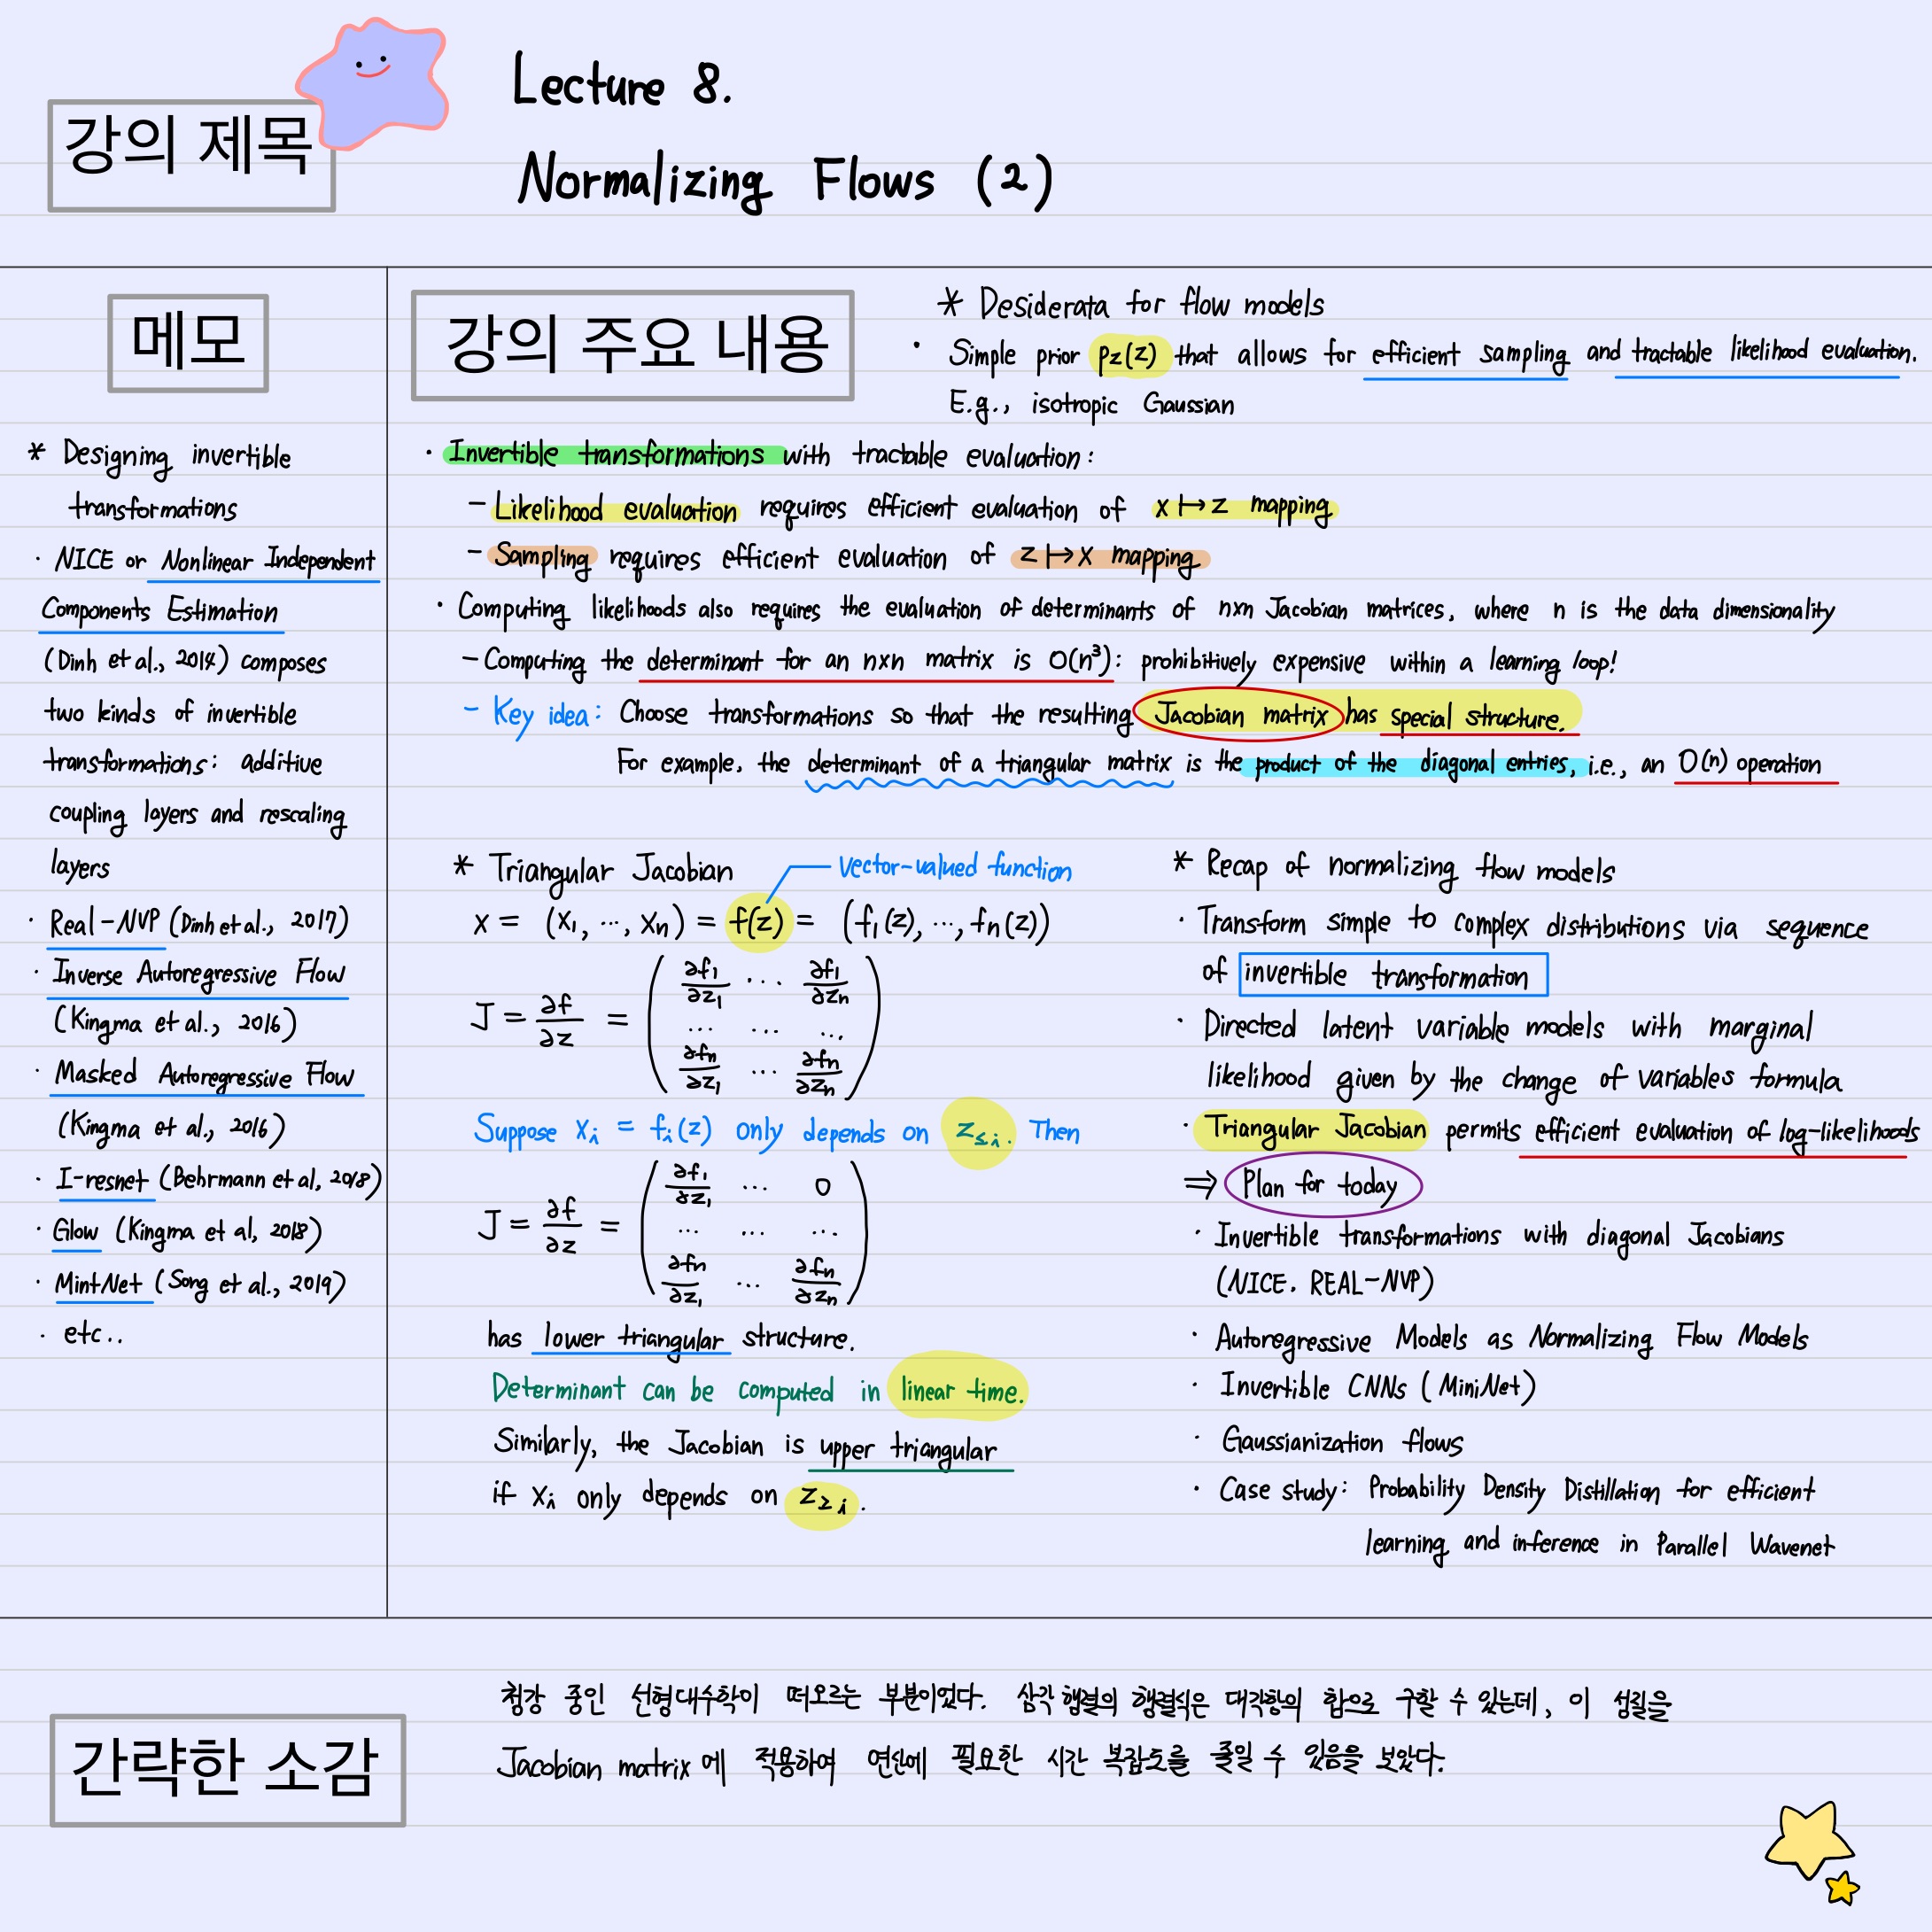 강의 제목
Lecture 8.
Normalizing Flows (2)
메모
* Designing invertible
transformations
· NICE or Nonlinear Independent
Components Estimation
(Dinh et al., 2014) composes
two kinds of invertible
transformations: additive
coupling layers and rescaling
layers
· Real-NVP (Dinh et al., 2017)
· Inverse Autoregressive Flow
(Kingma et al., 2016)
· Masked Autoregressive Flow
(Kingma et al., 2016)
· I-resnet (Behrmann et al, 2018)
· Glow (Kingma et al, 2018)
· MintNet (Song et al., 2019)
· etc..
강의 주요 내용
* Desiderata for flow models
· Simple prior p_z(z) that allows for efficient sampling and tractable likelihood evaluation.
E.g., isotropic Gaussian
· Invertible transformations with tractable evaluation:
- Likelihood evaluation requires efficient evaluation of x ↦ z mapping
- Sampling requires efficient evaluation of z ↦ x mapping
· Computing likelihoods also requires the evaluation of determinants of n×n Jacobian matrices, where n is the data dimensionality
- Computing the determinant for an n×n matrix is O(n³): prohibitively expensive within a learning loop!
- Key idea: Choose transformations so that the resulting Jacobian matrix has special structure.
For example, the determinant of a triangular matrix is the product of the diagonal entries, i.e., an O(n) operation
* Triangular Jacobian
vector-valued function
x = (x₁, ⋯, xₙ) = f(z) = (f₁(z), ⋯, fₙ(z))
J = ∂f/∂z = ( ∂f₁/∂z₁ ⋯ ∂f₁/∂zₙ
⋯ ⋯ ⋯
∂fₙ/∂z₁ ⋯ ∂fₙ/∂zₙ )
Suppose xᵢ = fᵢ(z) only depends on z≤i. Then
J = ∂f/∂z = ( ∂f₁/∂z₁ ⋯ 0
⋯ ⋯ ⋯
∂fₙ/∂z₁ ⋯ ∂fₙ/∂zₙ )
has lower triangular structure.
Determinant can be computed in linear time.
Similarly, the Jacobian is upper triangular
if xᵢ only depends on z≥i.
* Recap of normalizing flow models
· Transform simple to complex distributions via sequence
of invertible transformation
· Directed latent variable models with marginal
likelihood given by the change of variables formula
· Triangular Jacobian permits efficient evaluation of log-likelihoods
⇒ Plan for today
· Invertible transformations with diagonal Jacobians
(NICE. REAL-NVP)
· Autoregressive Models as Normalizing Flow Models
· Invertible CNNs (MiniNet)
· Gaussianization flows
· Case study: Probability Density Distillation for efficient
learning and inference in Parallel Wavenet
간략한 소감
청강 중인 선형대수학이 떠오르는 부분이었다. 삼각 행렬의 행렬식은 대각항의 합으로 구할 수 있는데, 이 성질을
Jacobian matrix에 적용하여 연산에 필요한 시간 복잡도를 줄일 수 있음을 보았다.